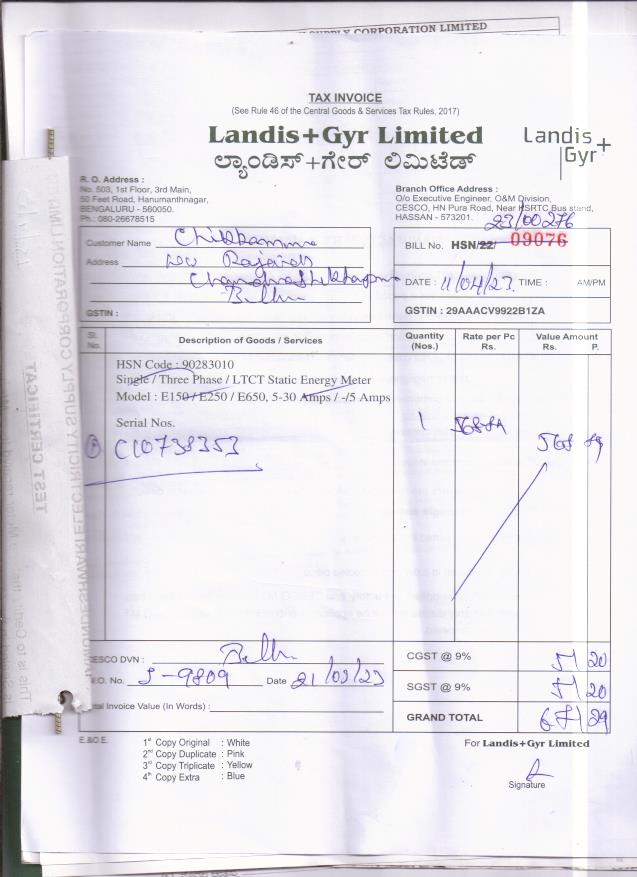 SUPPLY CORPORATION LIMITED
TAX INVOICE
(See Rule 46 of the Central Goods & Services Tax Rules, 2017)
Landis+Gyr Limited
Landis+Gyr+
ಲ್ಯಾಂಡಿಸ್+ಗೇರ್ ಲಿಮಿಟೆಡ್
R. O. Address :
No. 503, 1st Floor, 3rd Main,
50 Feet Road, Hanumanthnagar,
BENGALURU - 560050.
Ph.: 080-26678515
Branch Office Address :
O/o Executive Engineer, O&M Division,
CESCO, HN Pura Road, Near KSRTC Bus stand,
HASSAN - 573201.
23/00276
Customer Name Chikkamma
Address
GSTIN :
BILL No. HSN/22/ 09076
DATE : 11/04/23 TIME : AM/PM
GSTIN : 29AAACV9922B1ZA
Sl. No. Description of Goods / Services Quantity (Nos.) Rate per Pc Rs. Value Amount Rs. P.
HSN Code : 90283010
Single / Three Phase / LTCT Static Energy Meter
Model : E150 / E250 / E650, 5-30 Amps / -/5 Amps
Serial Nos. 1 568.89 568 89
C10738353
CESCO DVN :
R.O. No. J-9809 Date 21/03/23
Total Invoice Value (In Words) :
CGST @ 9% 51 20
SGST @ 9% 51 20
GRAND TOTAL 671 29
E.&O.E.
1st Copy Original : White
2nd Copy Duplicate : Pink
3rd Copy Triplicate : Yellow
4th Copy Extra : Blue
For Landis+Gyr Limited
Signature
TEST CERTIFICAT
ELECTRICITY SUPPLY CORPORATION
This is to Certify the